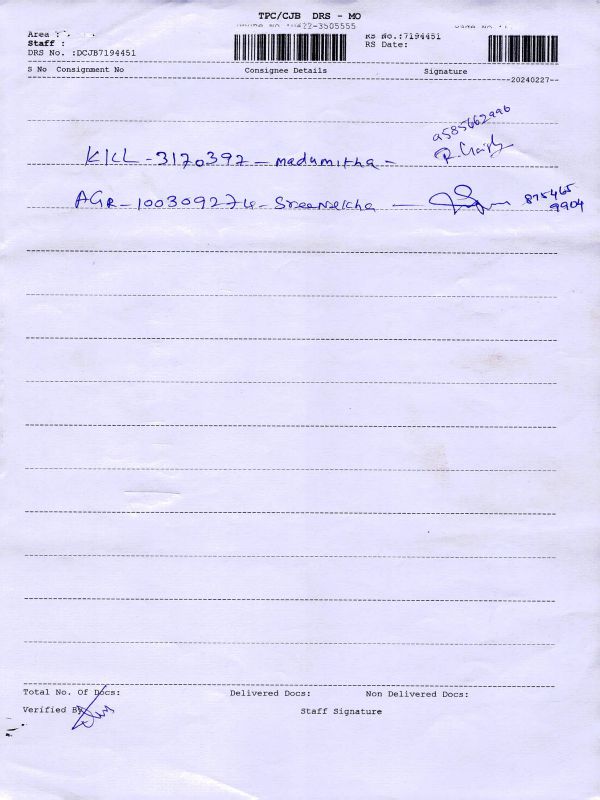 TPC/CJB DRS - MO
Area :
Staff :
DRS No. :DCJB7194451
0422-3505555
RS No.:7194451
RS Date:
S No Consignment No Consignee Details Signature
20240227
9585662996
KILL - 3170397 - madumitha -
AGR - 100309274 - Sreenekha - 875465
9904
Total No. Of Docs: Delivered Docs: Non Delivered Docs:
Verified By
Staff Signature